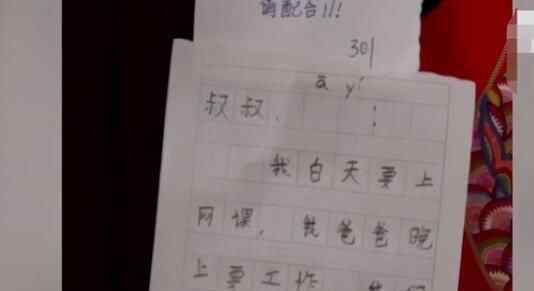 请配合!!!
301
ā yí
叔叔、 :
我白天要上
网课，我爸爸晚
上要工作